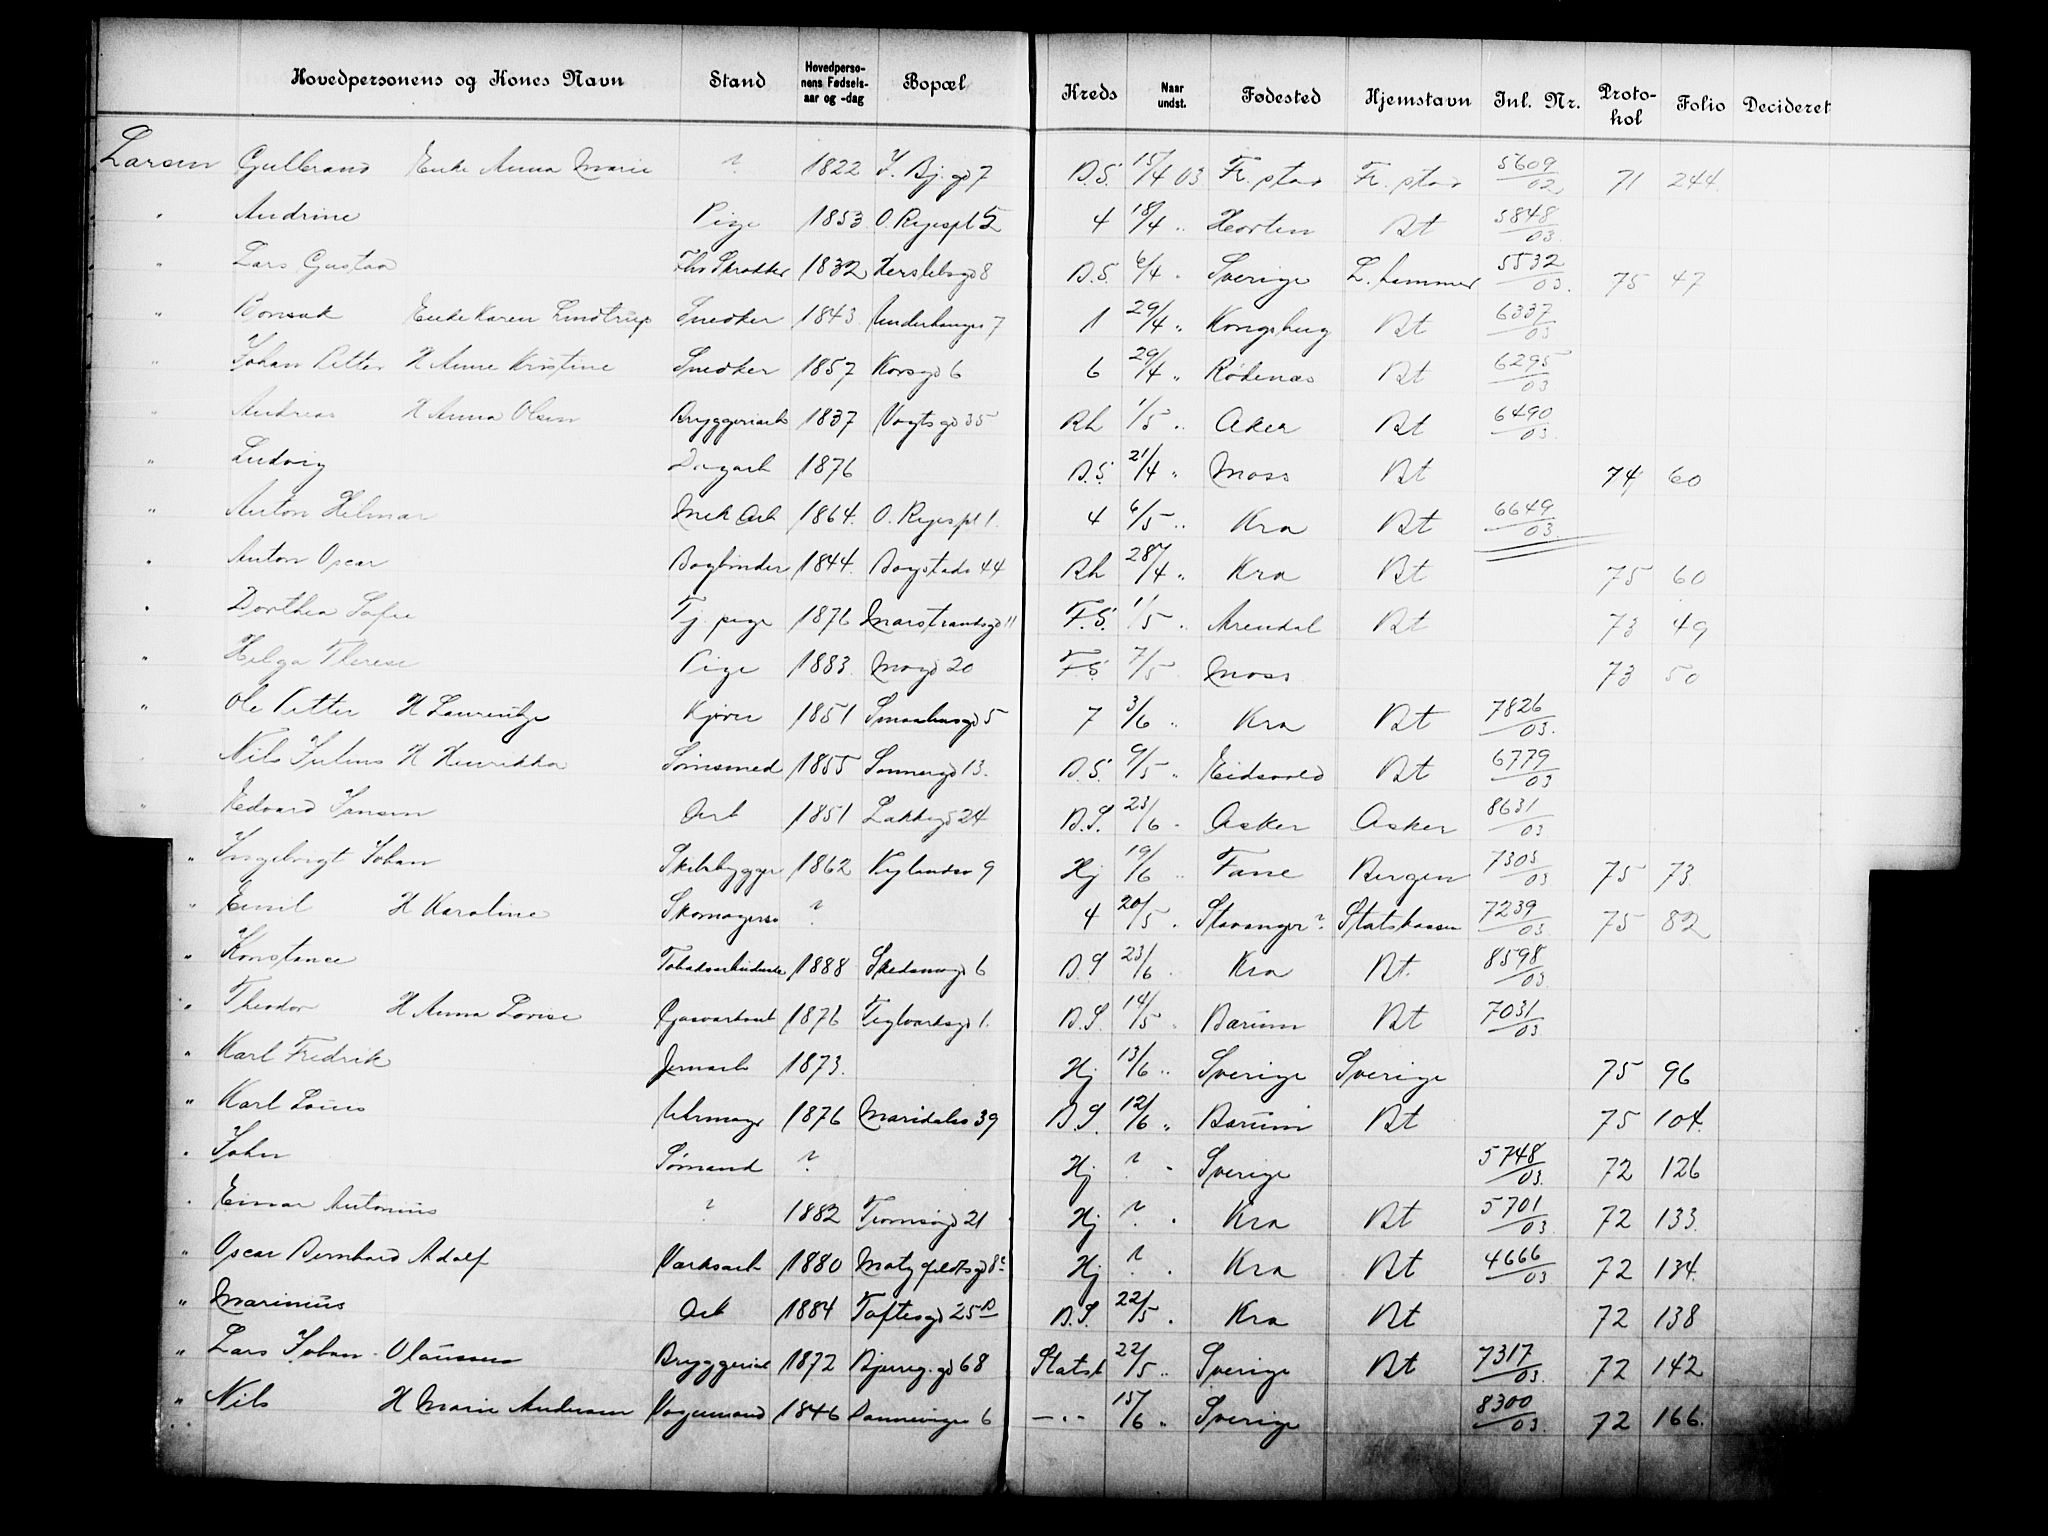 Hovedpersonens og Kones Navn Stand Hovedperso-nens Fødsels-aar og -dag Bopæl Kreds Naar undst. Fødested Hjemstavn Inl. Nr. Proto-kol Folio Decideret
Larsen Gulbrand Enke Anna Marie ? 1822 Y. Bj. gd 7 B.S. 15/4 03 Fr. stad Fr. stad 5609/02 71 244
" Andrine Pige 1853 O. Ryespl 5 4 18/4 " Horten Bt 5848/03
" Lars Gustav Fhv Skrædder 1832 Herslebsgd 8 B.S. 6/4 " Sverige L. hammer 5532/03 75 47
" Bonsak Enke Karen Lindtrup Snedker 1843 7 1 29/4 " Kongsberg Bt 6337/03
" Johan Petter H Anne Kristine Snedker 1857 Korsgd 6 6 29/4 " Rødenæs Bt 6295/03
" Andreas H Anna Olsen Bryggeriarb 1837 Vogtsgd 35 Rh 1/5 " Aker Bt 6490/03
" Ludvig Dagarb 1876 B.S. 21/4 " Moss Bt 74 60
" Anton Hilmar Mek Arb 1864 O. Ryespl 1. 4 6/5 " Kra Bt 6649/03
" Anton Oscar Bogbinder 1844 Bogstadv 44 Rh 28/4 " Kra Bt 75 60
" Dorthea Sofie Tj. pige 1876 Marstrandsgd 11 F.S. 1/5 " Arendal Bt 73 49
" Helga Therese Pige 1883 Mogd 20 F.S. 7/5 Moss 73 50
" Ole Petter H Laurentze Kjører 1851 5 7 3/6 " Kra Bt 7826/03
" Nils Julius H Henrikka Sømsmed 1855 Sannergd 13. B.S. 9/5 " Eidsvold Bt 6779/03
" Edvard Jensen Arb 1851 Lakkegd 24 B.S. 23/6 " Asker Asker 8631/03
" Ingebrigt Johan Skibsbygger 1862 9 Hj 19/6 " Fane Bergen 7305/03 75 73
" Emil H Karoline Skomagersv ? 4 20/5 " Stavanger ? Statskassen 7239/03 75 82
" Konstance Tobaksarbiderske 1888 Skedsmogd 6 B.S 23/6 " Kra Bt. 8598/03
" Theodor H Anna Lovise Gasværksarb 1876 Teglverksgd 1. B.S. 14/5 " Bærum Bt 7031/03
" Karl Fredrik Jernarb 1873. Hj 13/6 " Sverige Sverige 75 96
" Karl Louis Uhrmagr 1876 Maridalsv 39 B.S. 12/6 " Bærum Bt 75 104.
" John Sømand ? Hj ? " Sverige 5748/03. 72 126
" Einar Antonius ? 1882 Tromsøgd 21 Hj ? " Kra Bt 5701/03 72 133.
" Oscar Bernhard Adolf Værksarb 1880 Motzfeldtsgd 8c Hj ? " Kra Bt 4666/03 72 134.
" Marinius Arb 1884 Toftesgd 25B B.S. 22/5 " Kra Bt 72 138
" Lars Johan Olaussen Bryggeriarb 1872 Bjerreg. gd 68 Statsb 22/5 " Sverige Bt 7317/03. 72 142
" Nils H Marie Andersen Vognmand 1846 6 — " — 15/6 " Sverige 8300/03. 72 166.